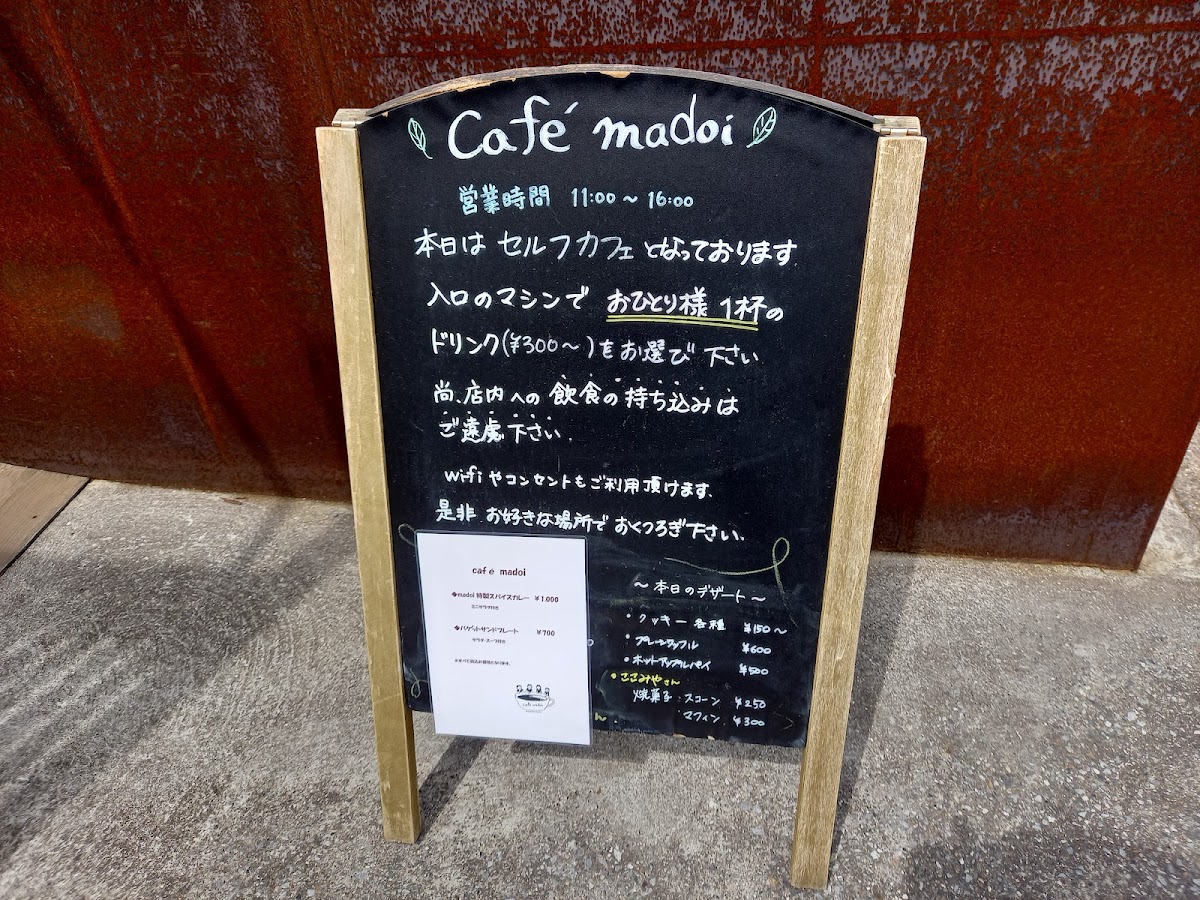 Café madoi
営業時間 11:00～16:00
本日は セルフカフェ となっております.
入口のマシンで おひとり様 1杯の
ドリンク(¥300～)をお選び下さい
尚、店内への飲食の持ち込みは
ご遠慮下さい.
wi-fi やコンセントもご利用頂けます.
是非 お好きな場所で おくつろぎ下さい.
café madoi
◆madoi 特製スパイスカレー ￥1.000
ミニサラダ付き
◆バゲットサンドプレート ￥700
サラダ・スープ付き
※すべて税込み価格となります。
café madoi
～本日のデザート～
・クッキー各種 ¥150～
・プレーンワッフル ¥600
・ホットアップルパイ ¥500
・ここみやさん
焼菓子：スコーン ¥250
マフィン ¥300
ん